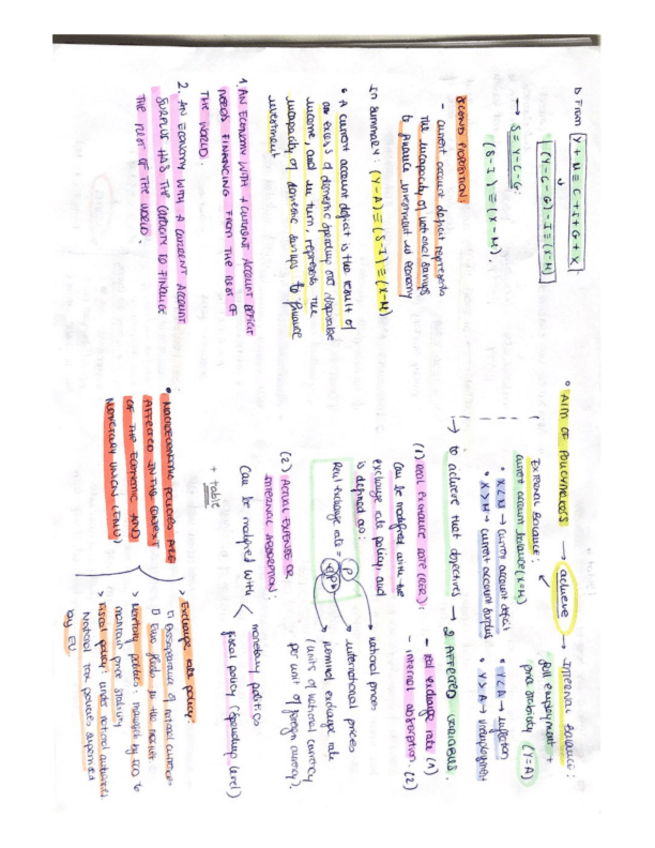 D From Y + M ≡ C + I + G + X
(Y - C - G) - I ≡ (X - M)
→ S ≡ Y - C - G:
(S - I) ≡ (X - M).
SECOND PROPOSITION:
- current account deficit represents
the incapacity of national savings
to finance investment in economy
In summary: (Y-A) ≡ (S-I) ≡ (X-M)
• A current account deficit is the result of
an excess of domestic spending over disposable
income, and in turn, represents the
incapacity of domestic savings to finance
investment
1. AN ECONOMY WITH A CURRENT ACCOUNT DEFICIT
NEEDS FINANCING FROM THE REST OF
THE WORLD.
2. AN ECONOMY WITH A CURRENT ACCOUNT
SURPLUS HAS THE CAPACITY TO FINANCE
THE REST OF THE WORLD.
• AIM OF POLICYMAKERS → achieve → INTERNAL BALANCE:
full employment +
price stability (Y=A)
• Y<A → inflation
• Y>A → unemployment
EXTERNAL BALANCE:
current account balance (X=M)
• X<M → current account deficit
• X>M → current account surplus
→ to achieve that objectives → 2 AFFECTED VARIABLES:
- real exchange rate (1)
- internal absorption. (2)
(1) REAL EXCHANGE RATE (RER):
Can be modified with the
exchange rate policy, and
is defined as:
Real exchange rate = P
→ national prices
→ international prices
→ nominal exchange rate
(units of national currency
per unit of foreign currency).
(2) ACTUAL EXPENSE OR
INTERNAL ABSORPTION:
Can be modified with <
monetary politics
fiscal policy (spending level)
+ table
• MACROECONOMIC POLICIES ARE
AFFECTED IN THE CONTEXT
OF THE ECONOMIC AND
MONETARY UNION (EMU)
> Exchange rate policy:
Disappearance of national currencies
Euro in the market
> Monetary policies: by ECB to
maintain price stability
> Fiscal policy: under national authorities.
National policies supervised
by EU